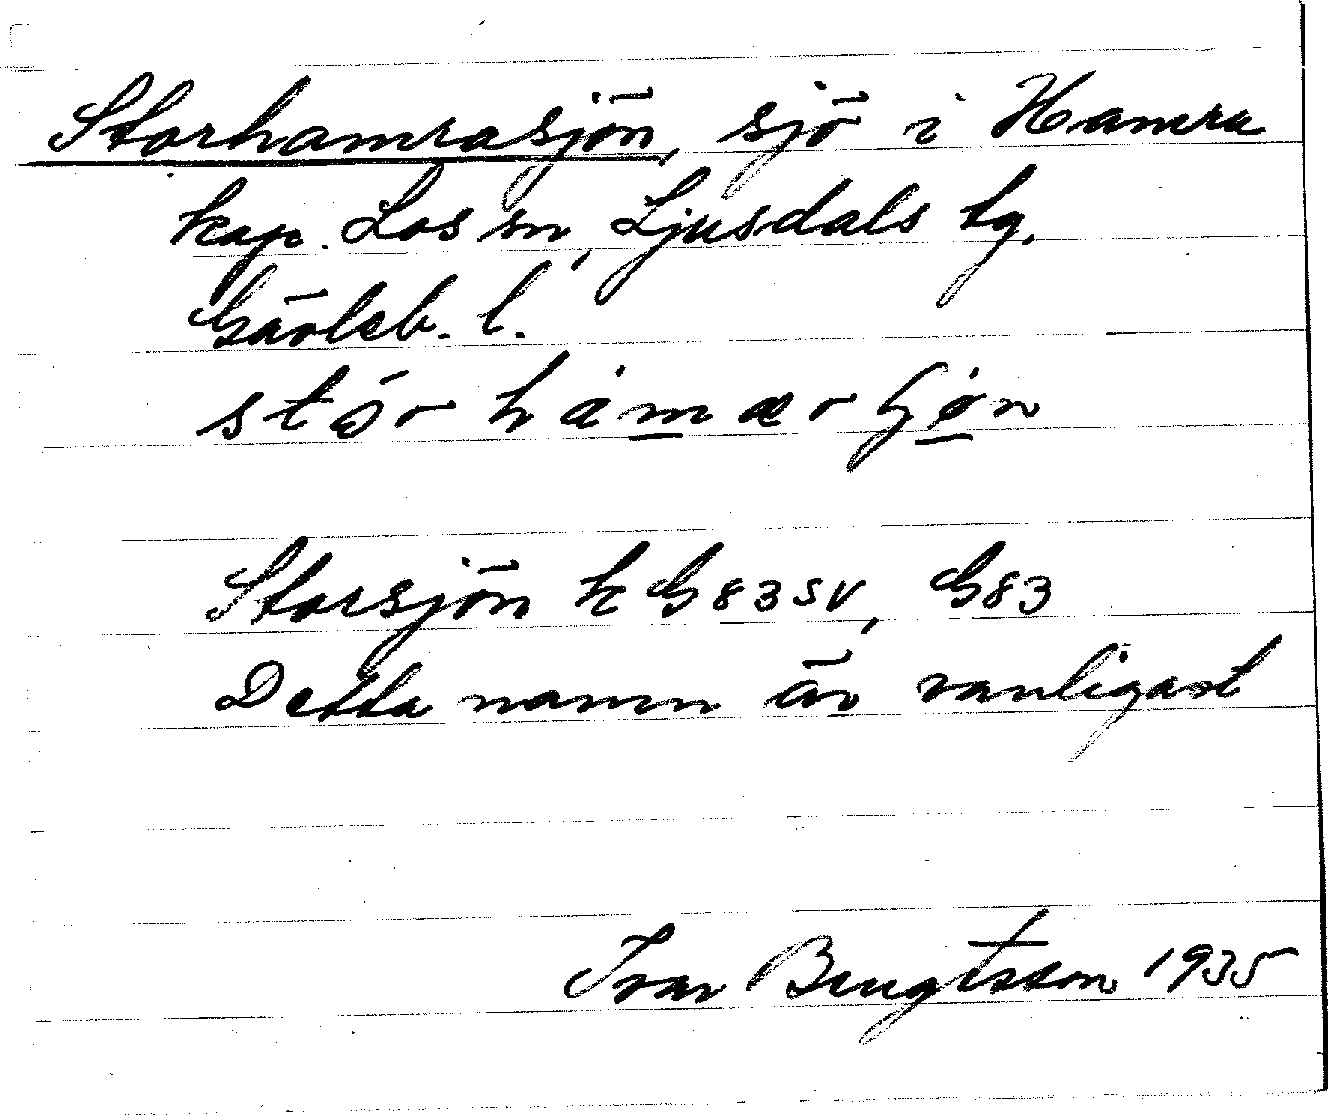 Storhamrasjön, sjö i Hamra
kap. Los sn, Ljusdals tg,
Gävleb. l.
Storsjön k G83SV, G83
Detta namn är vanligast
Ivar Bengtsson 1935